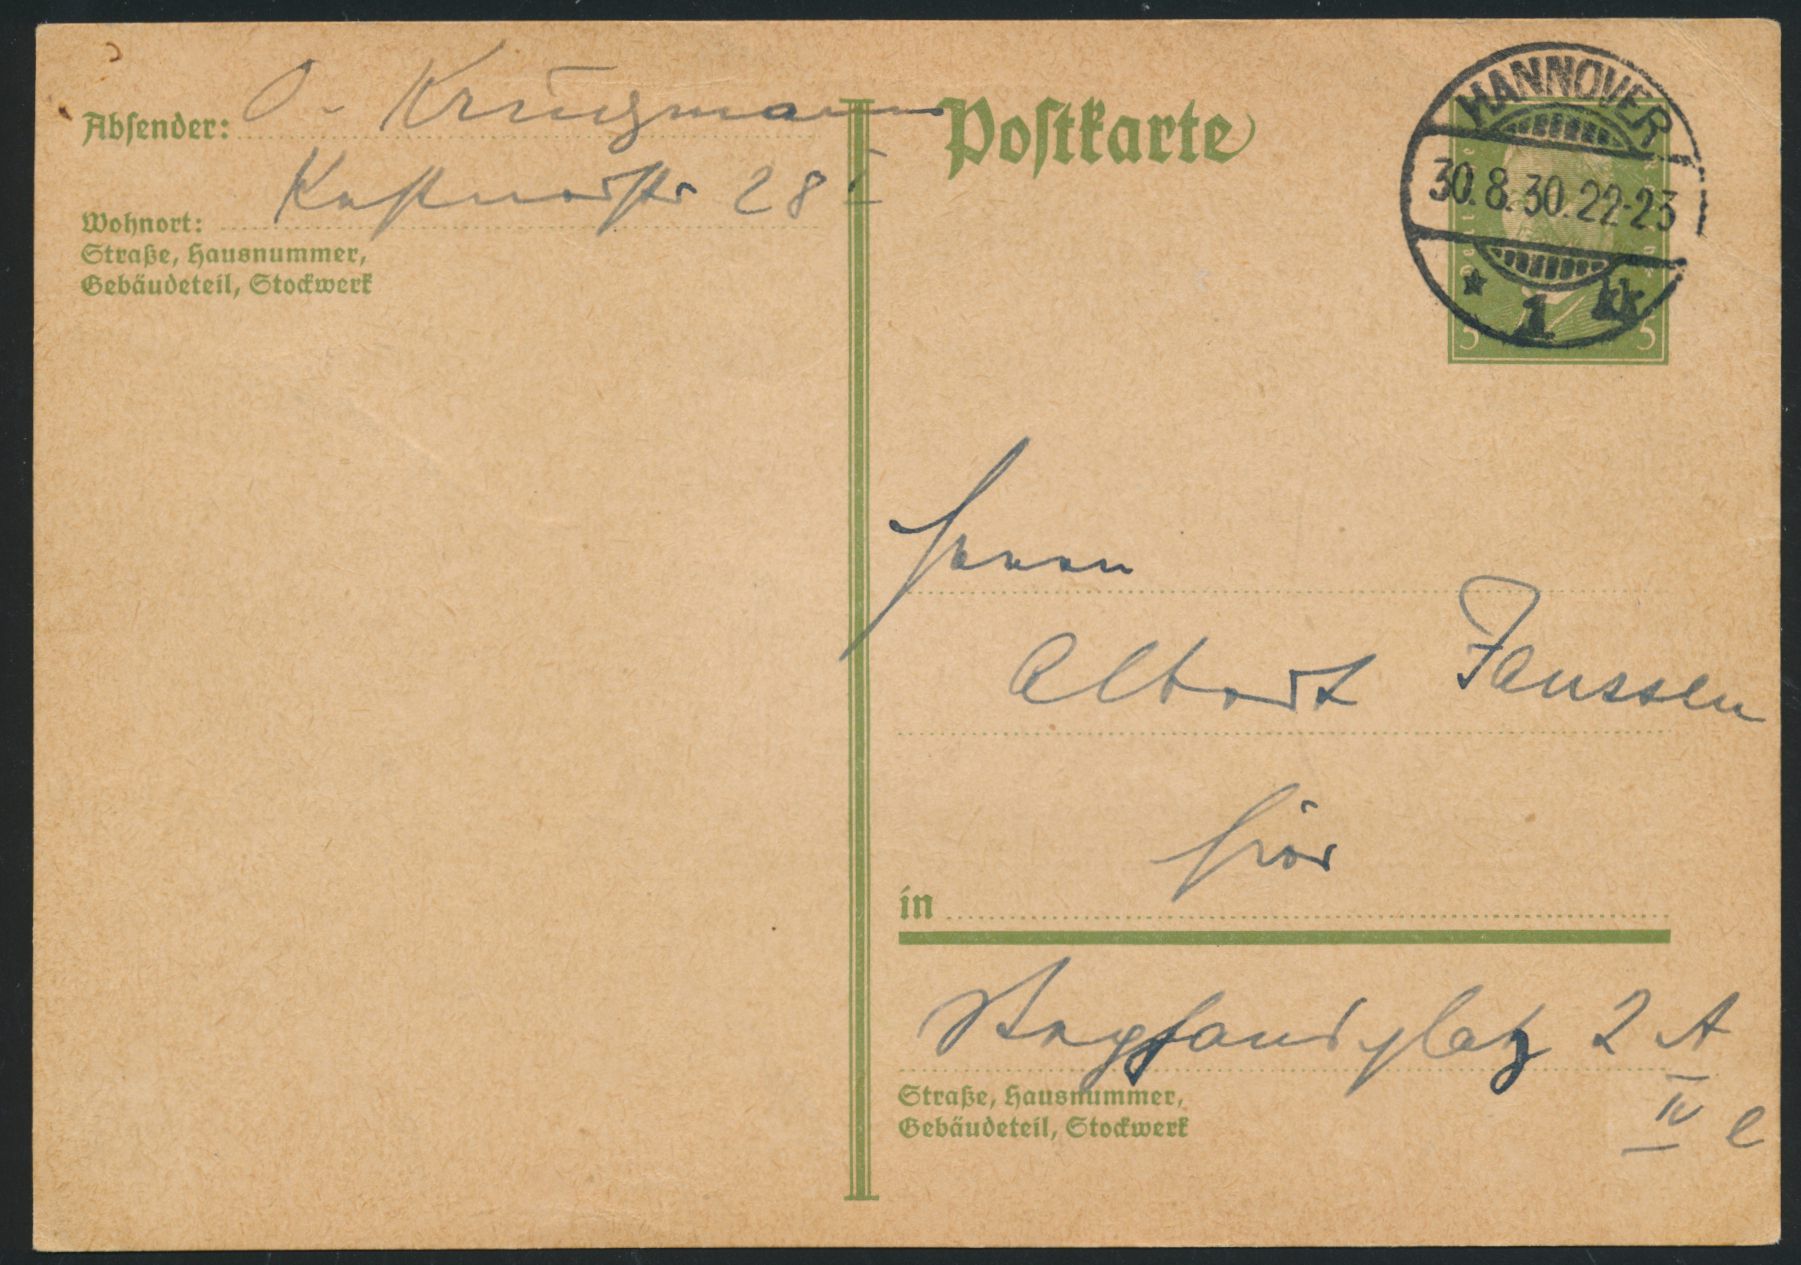 Absender: O. Krugmann
Kestnerstr 28 I
Wohnort:
Straße, Hausnummer,
Gebäudeteil, Stockwerk
Postkarte
HANNOVER
30.8.30.22-23
* 1 kk
5 5
Herrn
Albert Janssen
hier
in
2 A
IV e
Straße, Hausnummer,
Gebäudeteil, Stockwerk